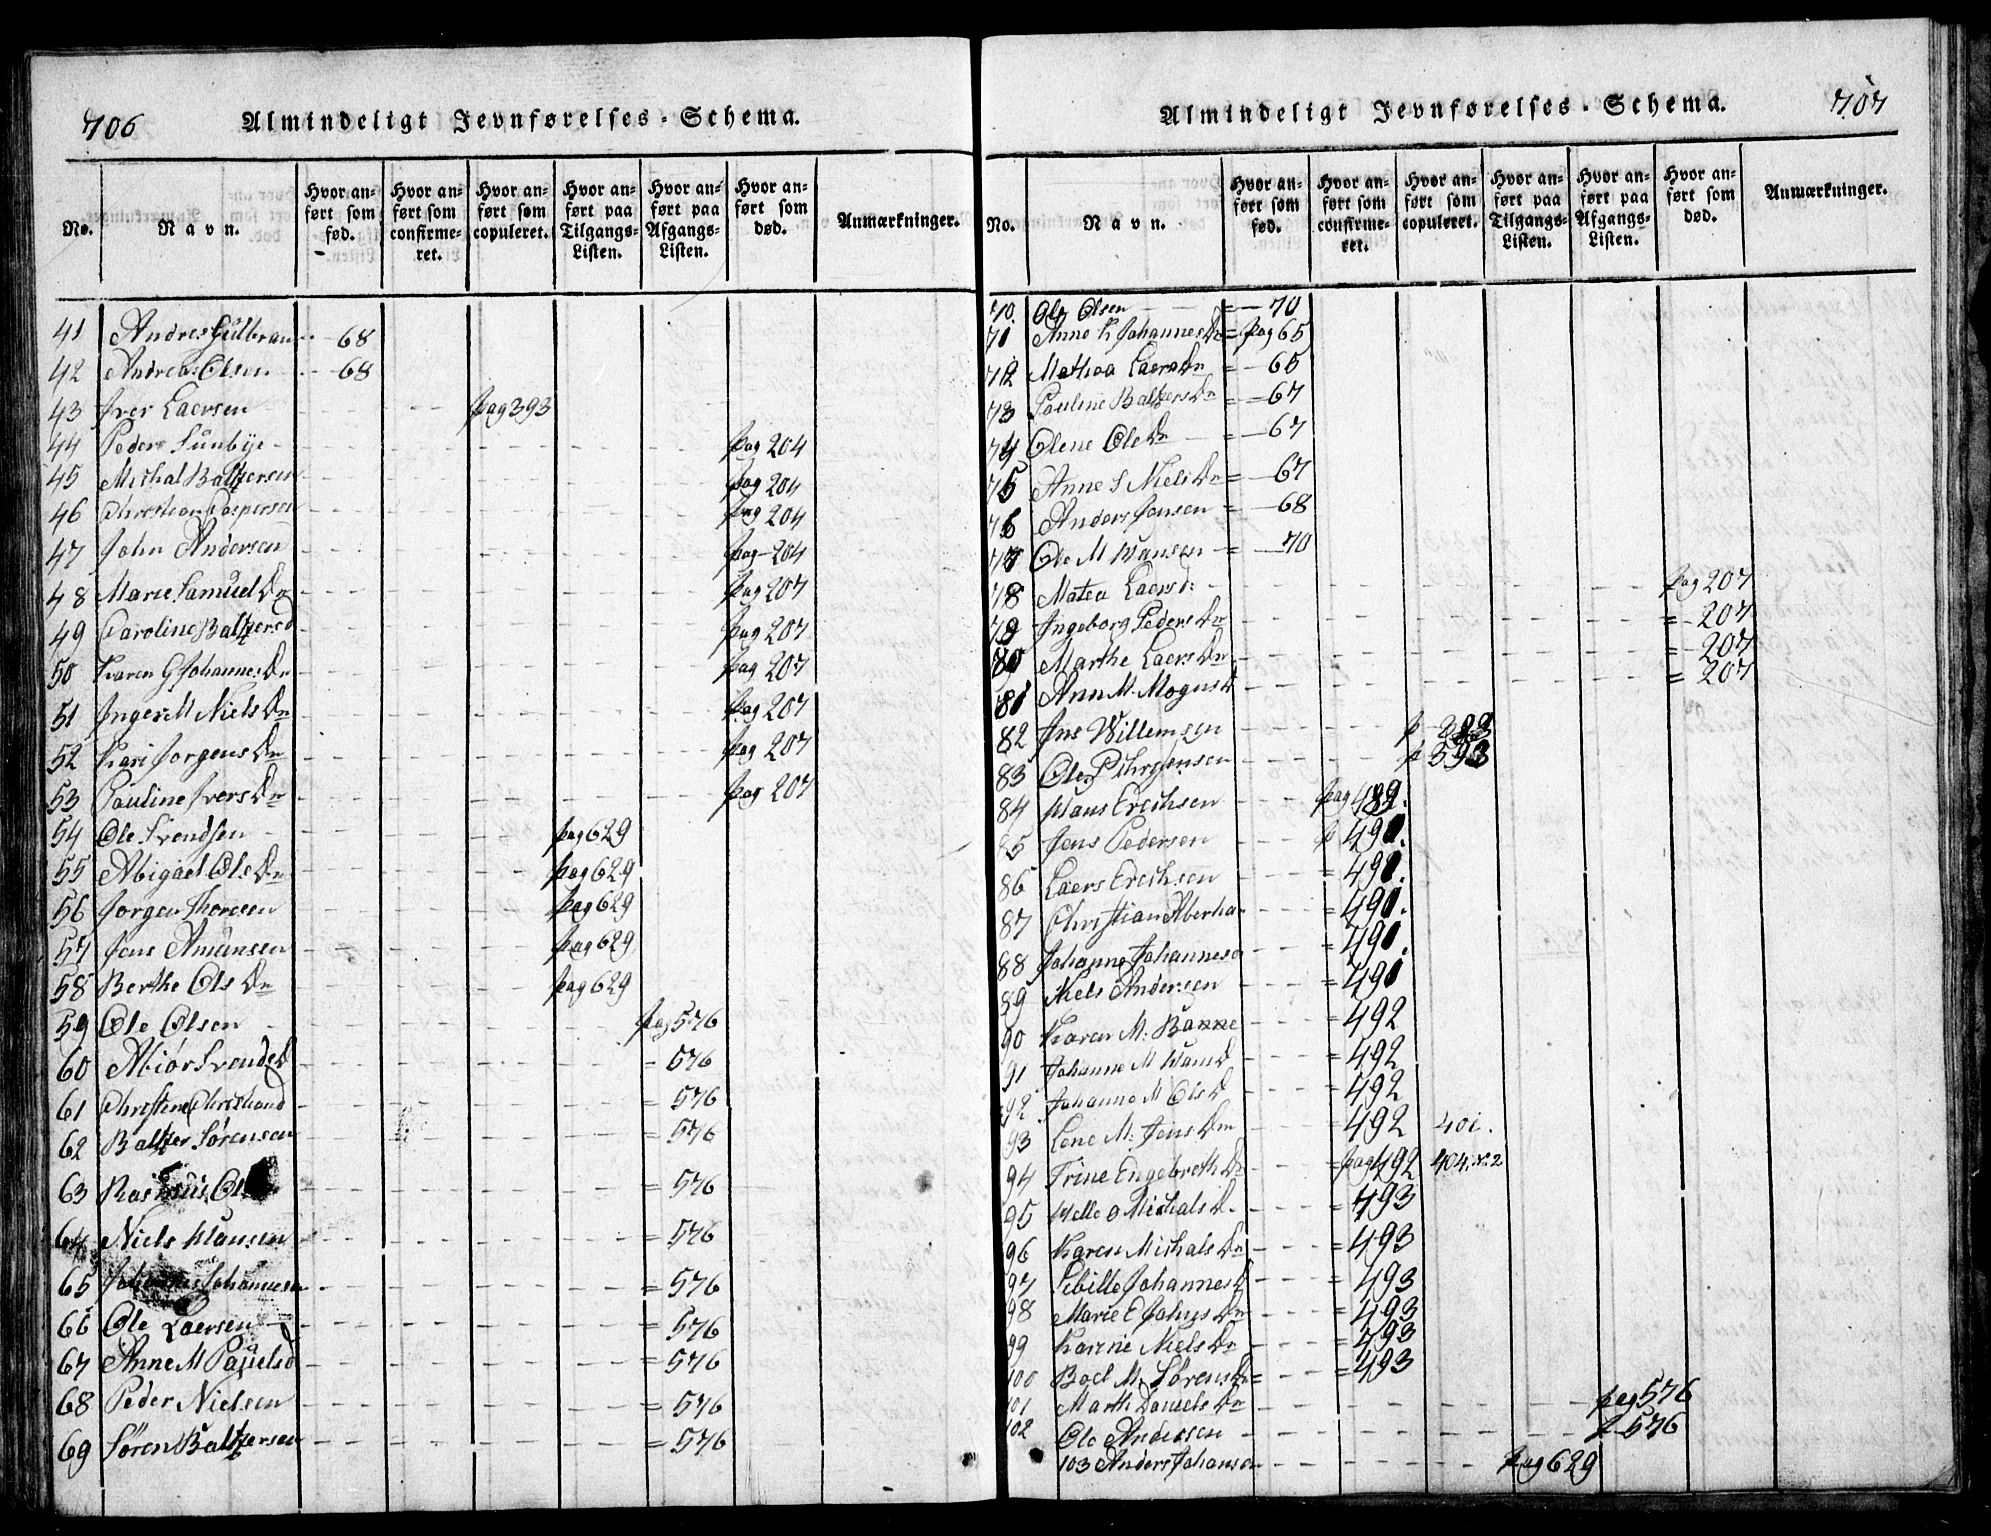 706
Almindeligt Jevnførelses-Schema.
No. Navn. Hvor anført som fød. Hvor anført som confirmeret. Hvor anført som copuleret. Hvor anført paa Tilgangs-Listen. Hvor anført paa Afgangs-Listen. Hvor anført som død. Anmærkninger.
41 Andres Gulbran 68
42 Andreas Olsen 68
43 Iver Laersen pag 393
44 Peder Sunbye pag 204
45 Mishal Baltzersen pag 204
46 Christian Caspersen pag 204
47 John Andersen pag 204
48 Marie Samuel Dr pag 207
49 Caroline Baltzersd pag 207
50 Karen G Johannes Dr pag 207
51 Inger M Niels Dr pag 207
52 Kari Jorgens Dr pag 207
53 Pauline Ivers Dr pag 207
54 Ole Svendsen pag 629
55 Abigael Ols Dr pag 629
56 Jorgen Thoresen pag 629
57 Jens Amunsen pag 629
58 Berthe Ols Dr pag 629
59 Ole Olsen pag 576
60 Abiør Svends D = 576
61 = 576
62 Baltzer Sørensen = 576
63 Rasmus = 576
64 Niels Hansen = 576
65 Johannes Johannesen = 576
66 Ole Laersen = 576
67 Anne M Pauelsd = 576
68 Peder Nielsen = 576
69 Søren Baltzersen = 576
707
Almindeligt Jevnførelses-Schema.
No. Navn. Hvor anført som fød. Hvor anført som confirmeret. Hvor anført som copuleret. Hvor anført paa Tilgangs-Listen. Hvor anført paa Afgangs-Listen. Hvor anført som død. Anmærkninger.
70. Ole Olsen = 70
71 Anne Johannes Dr = pag 65
72 Mathea Laers Dr = 65
73 Pauline Baltzers Dr = 67
74 Olene Ole Dr = 67
75 Anne S Niels Dr = 67
76 Anders Jensen = 68
77 Ole M Hansen = 70
78 Matea Laersd: pag 207
79 Ingeborg Peders Dr = 207
80 Marthe Laers Dr = 207
81 Ann M Mogns D = 207
82 Jns Willemsen p
83 Ole p 393
84 Hans Erichsen pag 489.
85 Jens Pedersen p 490.
86 Laers Erichsen = 490.
87 Christian Aberha = 490.
88 Johanne Johannesen = 490.
89 Niels Andersen = 490
90 Karen M: Banne = 492
91 Johanne M Hans D = 492
92 Johanne M Ols D = 492
93 Lene M: Jens Dr = 492 401.
94 Trine Engebreth Dr = pag 492 404.
95 Helle O Mishals D. = 493
96 Karen Mishals Dr = 493
97 Sibille Johannes D = 493
98 Marie E Johns Dr = 493
99 Karine Niels Dr = 493
100 Boel M. Sørens Dr = 493
101 Marth Daniels Dr pag 576
102 Ole Andersen p 576
103 Anders Johansen pag 629